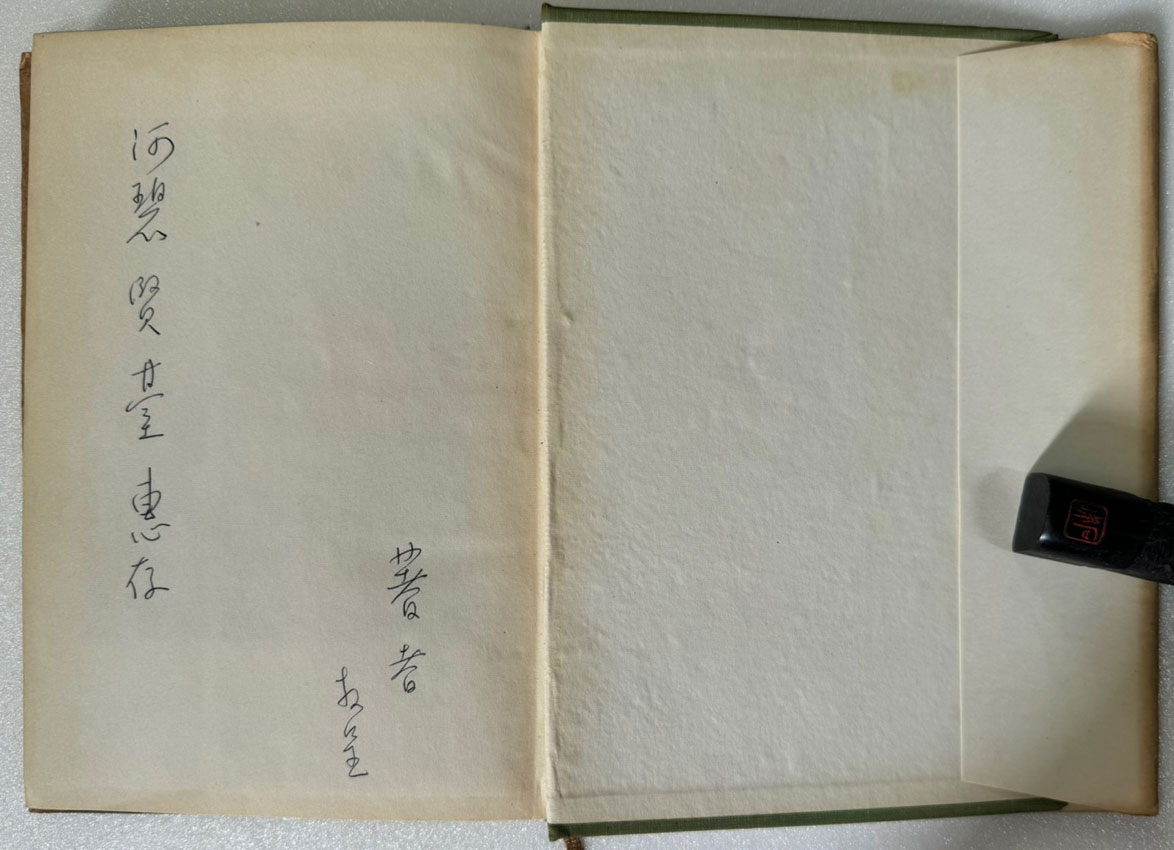 河碧 賢臺 惠存
著者
敬呈